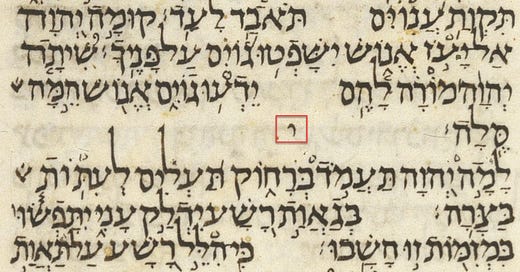 תִּקְוַת עֲנָוִים תֹּאבַד לָעַד׃ קוּמָה יְהוָה
אַל־יָעֹז אֱנוֹשׁ יִשָּׁפְטוּ גוֹיִם עַל־פָּנֶיךָ׃ שִׁיתָה
יְהוָה מוֹרָה לָהֶם יֵדְעוּ גוֹיִם אֱנוֹשׁ הֵמָּה
סֶּלָה׃ י
לָמָה יְהוָה תַּעֲמֹד בְּרָחוֹק תַּעְלִים לְעִתּוֹת
בַּצָּרָה׃ בְּגַאֲוַת רָשָׁע יִדְלַק עָנִי יִתָּפְשׂוּ
בִּמְזִמּוֹת זוּ חָשָׁבוּ׃ כִּי־הִלֵּל רָשָׁע עַל־תַּאֲוַת